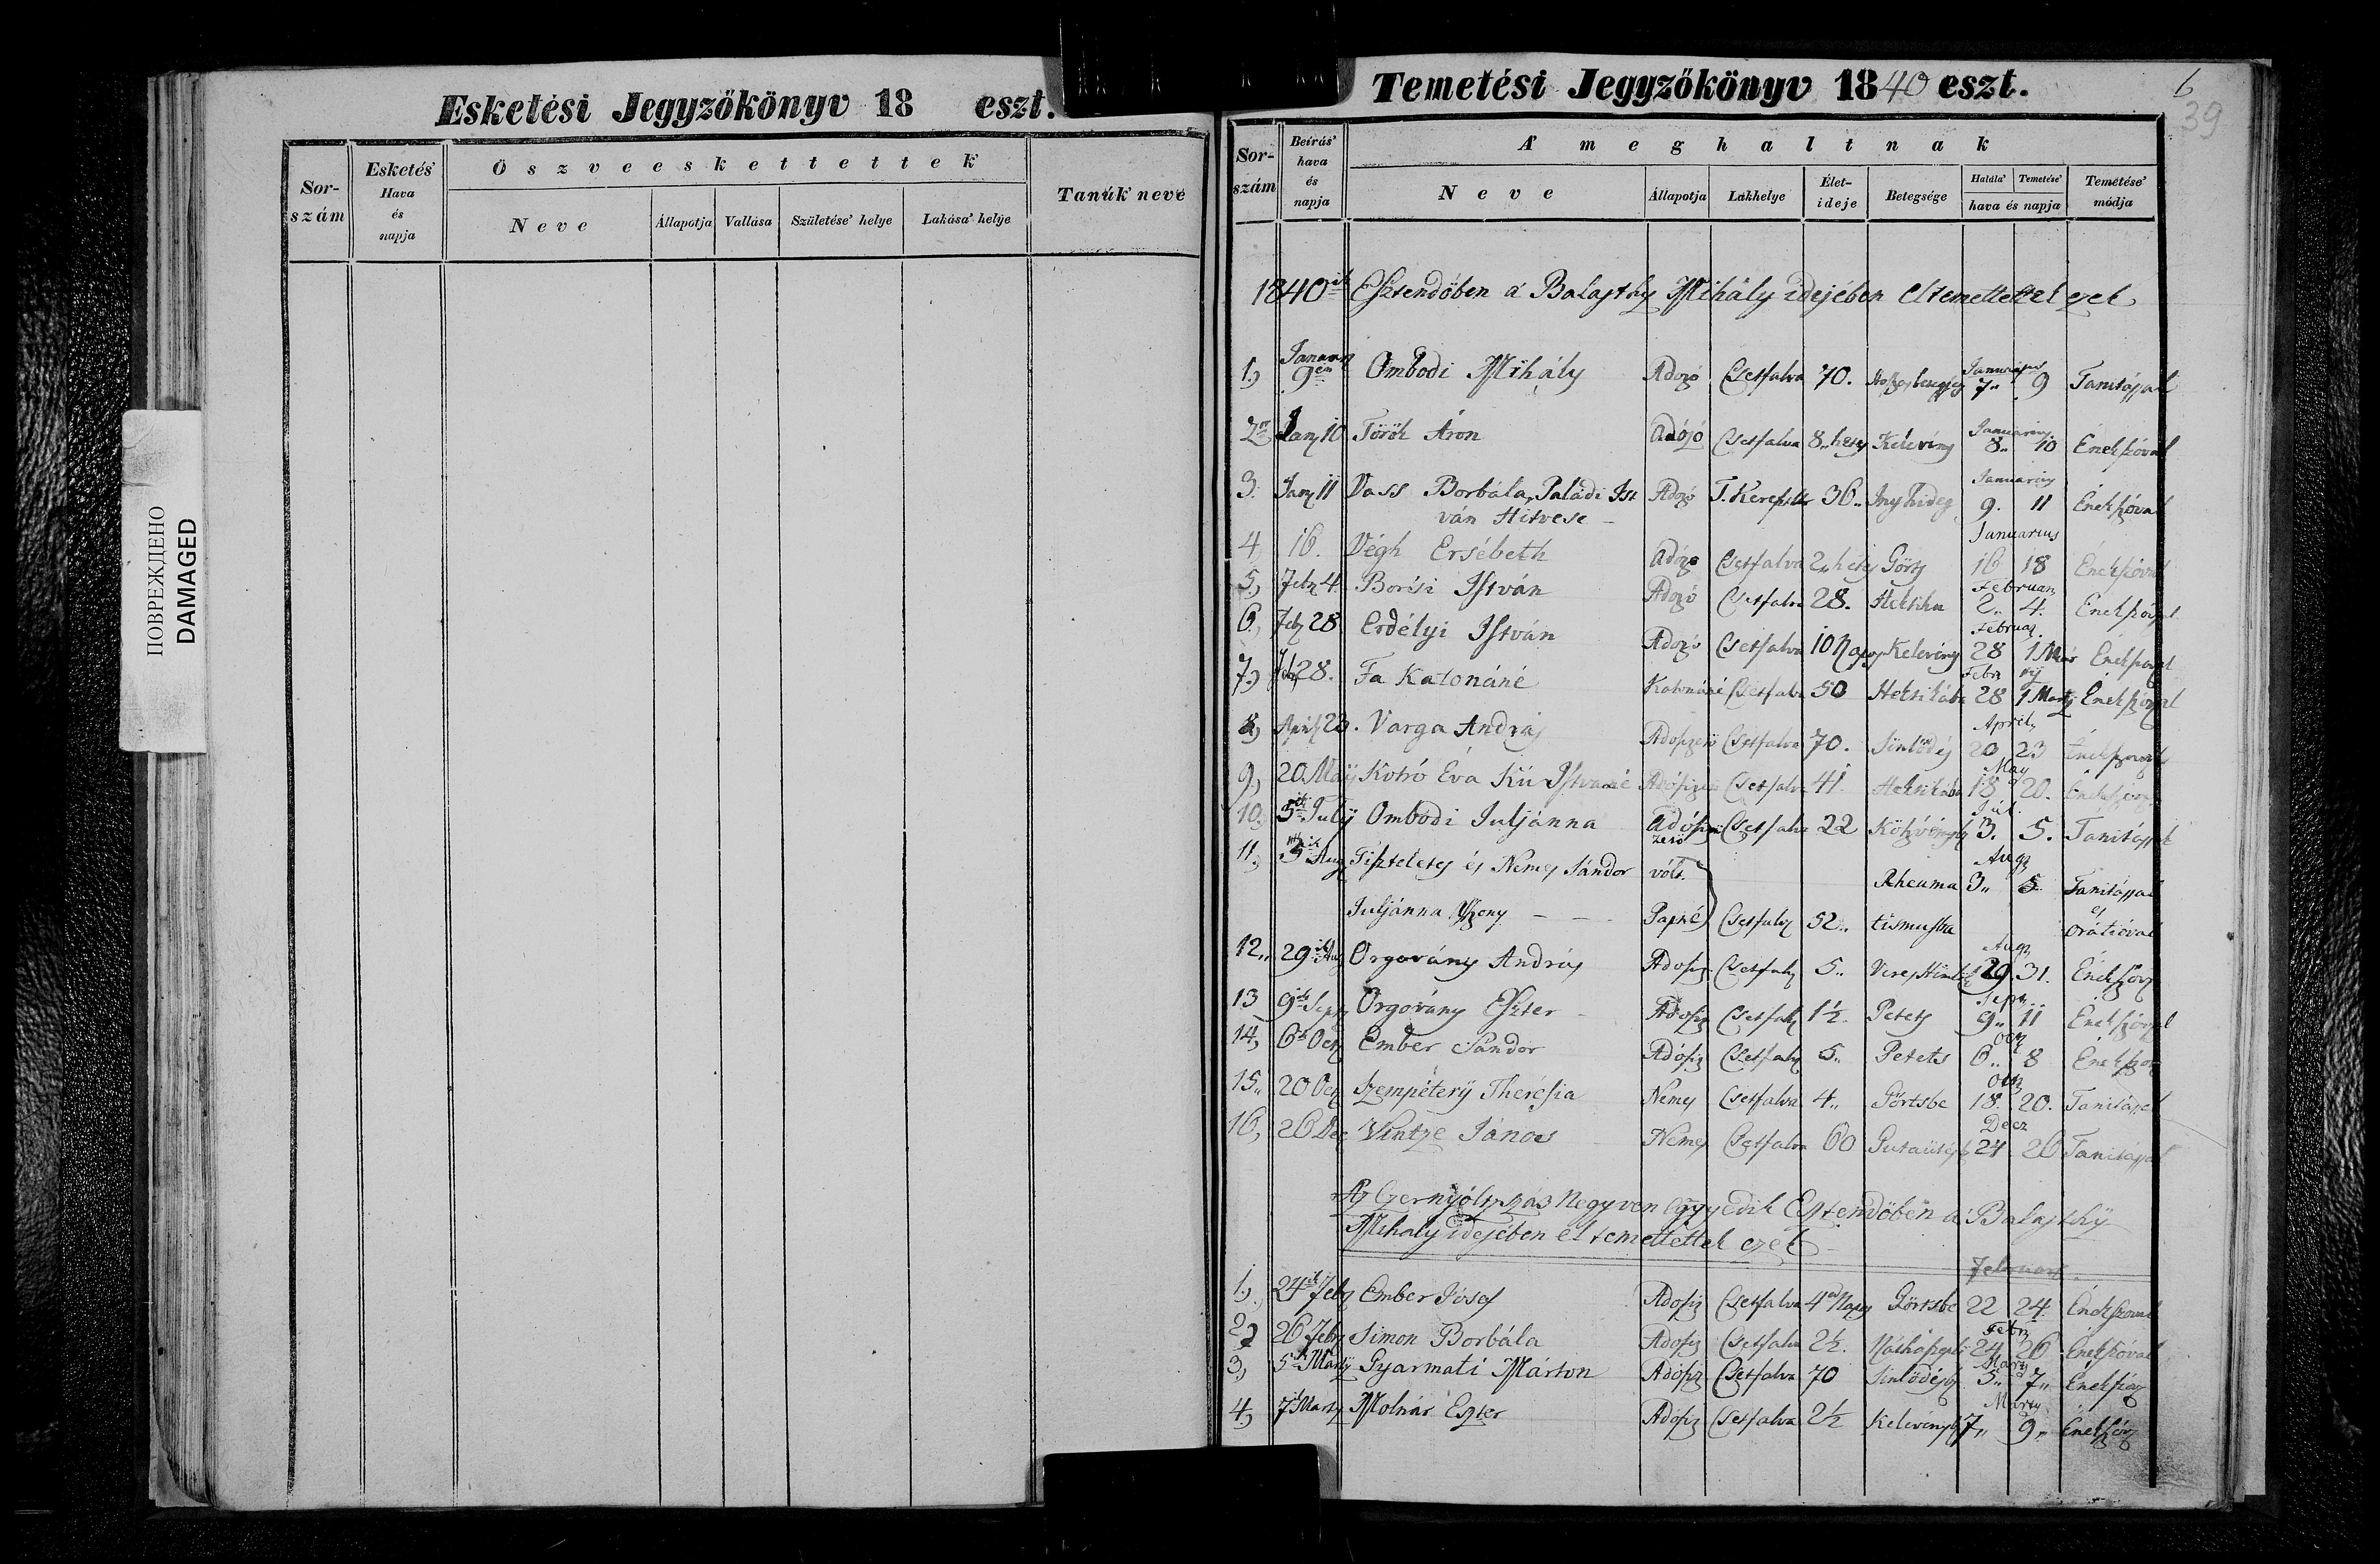 ПОВРЕЖДЕНО
DAMAGED
Esketési Jegyzőkönyv 18 eszt.
Sor-szám Esketés' Hava és napja Öszveeskettettek Tanúk neve
Neve Állapotja Vallása Születése' helye Lakása' helye
Temetési Jegyzőkönyv 1840 eszt.
6
39
Sor-szám Beírás' hava és napja A' meghaltnak
Neve Állapotja Lakhelye Élet-ideje Betegsége Halála' Temetése' hava és napja Temetése' módja
1840ik Esztendőben a' Balajthy Mihály idejében eltemettettek ezek
1.) Januar 9én Ombodi Mihály Adozó Csetfalva 70. Januárius 7,, 9 Tanitással
2or Janr 10 Török Áron Adózó Csetfalva 8,, hetes Kelevény Januarius 8,, 10 Énekszóval
3. Janr 11 Vass Borbála, Paládi Ist Adozó T. Kereszt 36,, Inyhideg Januarius 9. 11 Énekszóval
ván Hitvese –
4) 16. Végh Ersébeth Adózo Csetfalva 2,, hetes Görts Januarius 16 18 Énekszóval
5.) Febr 4. István Adozó Csetfalva 28. Hektika Februar 2,, 4. Énekszóval
6., Febr 28 Erdélyi István Adozó Csetfalva 10 Napos Kelevény Februar. 28 1 Már Énekszoval
7.) Feb 28. Fa Katonáné Katonáné Csetfalva 50 Hektikába Febr 28 1 Marty Énekszoval
8,) April 23. Varga András Adofizető Csetfalva 70. Sinlődés April 20 23 Énekszoval
9.) 20 Maij Kotró Éva Kis Istvánné Adófizető Csetfalva 41. Hektikába May 18 20. Énekszova
10.) 5ik July Ombodi Juljánna Adófizető Csetfalva 22 Júl. 3. 5. Tanitással
11.) 5ik Aug Tiszteletes és Nemes Sándor vólt Rheuma Aug 3,, 5 Tanitással
Juljánna Aszony – – Papné Csetfalv 52,, tismusba és orátióval
12,, 29ik Aug Orgovány András Adofiz Csetfalv 5,, Veres Himlő Aug 29. 31. Énekszov
13 9ik Sepr Orgovány Eszter – Adofiz Csetfalv 1½. Petets Sepr 9,, 11 Énekszóval
14, 6ik Oct Ember Sándor Adófiz Csetfalv 5,, Petets Oct 6,, 8 Énekszov
15,, 20 Oct Szempéterÿ Thérésia Nemes Csetfalva 4,, Görtsbe Oct 18. 20. Tanitással
16, 26 Dec Vintze János Nemes Csetfalva 60 Gutaütés Decz 24 26 Tanitással
Az Ezernyóltzszáz Negyven Eggyedik Esztendőben a' Balajthÿ
Mihaly idejében el temettettek ezek
1.) 24ik Febr Ember Jósef Adofiz Csetfalva 4ed Napos Görtsbe Februar 22 24. Énekszoval
2.) 26 Febr Simon Borbála Adofiz Csetfalva 2½. Febr 24 26 Énekszóval
3.) 5ik Martÿ Gyarmati Márton Adófiz Csetfalva 70 Sinlődésb Marty 5,, 7,, Énekszov
4.) 7ik Marty Molnár Eszter Adófiz Csetfalva 2½ Kelevényb Marty 7,, 9,, Énekszov